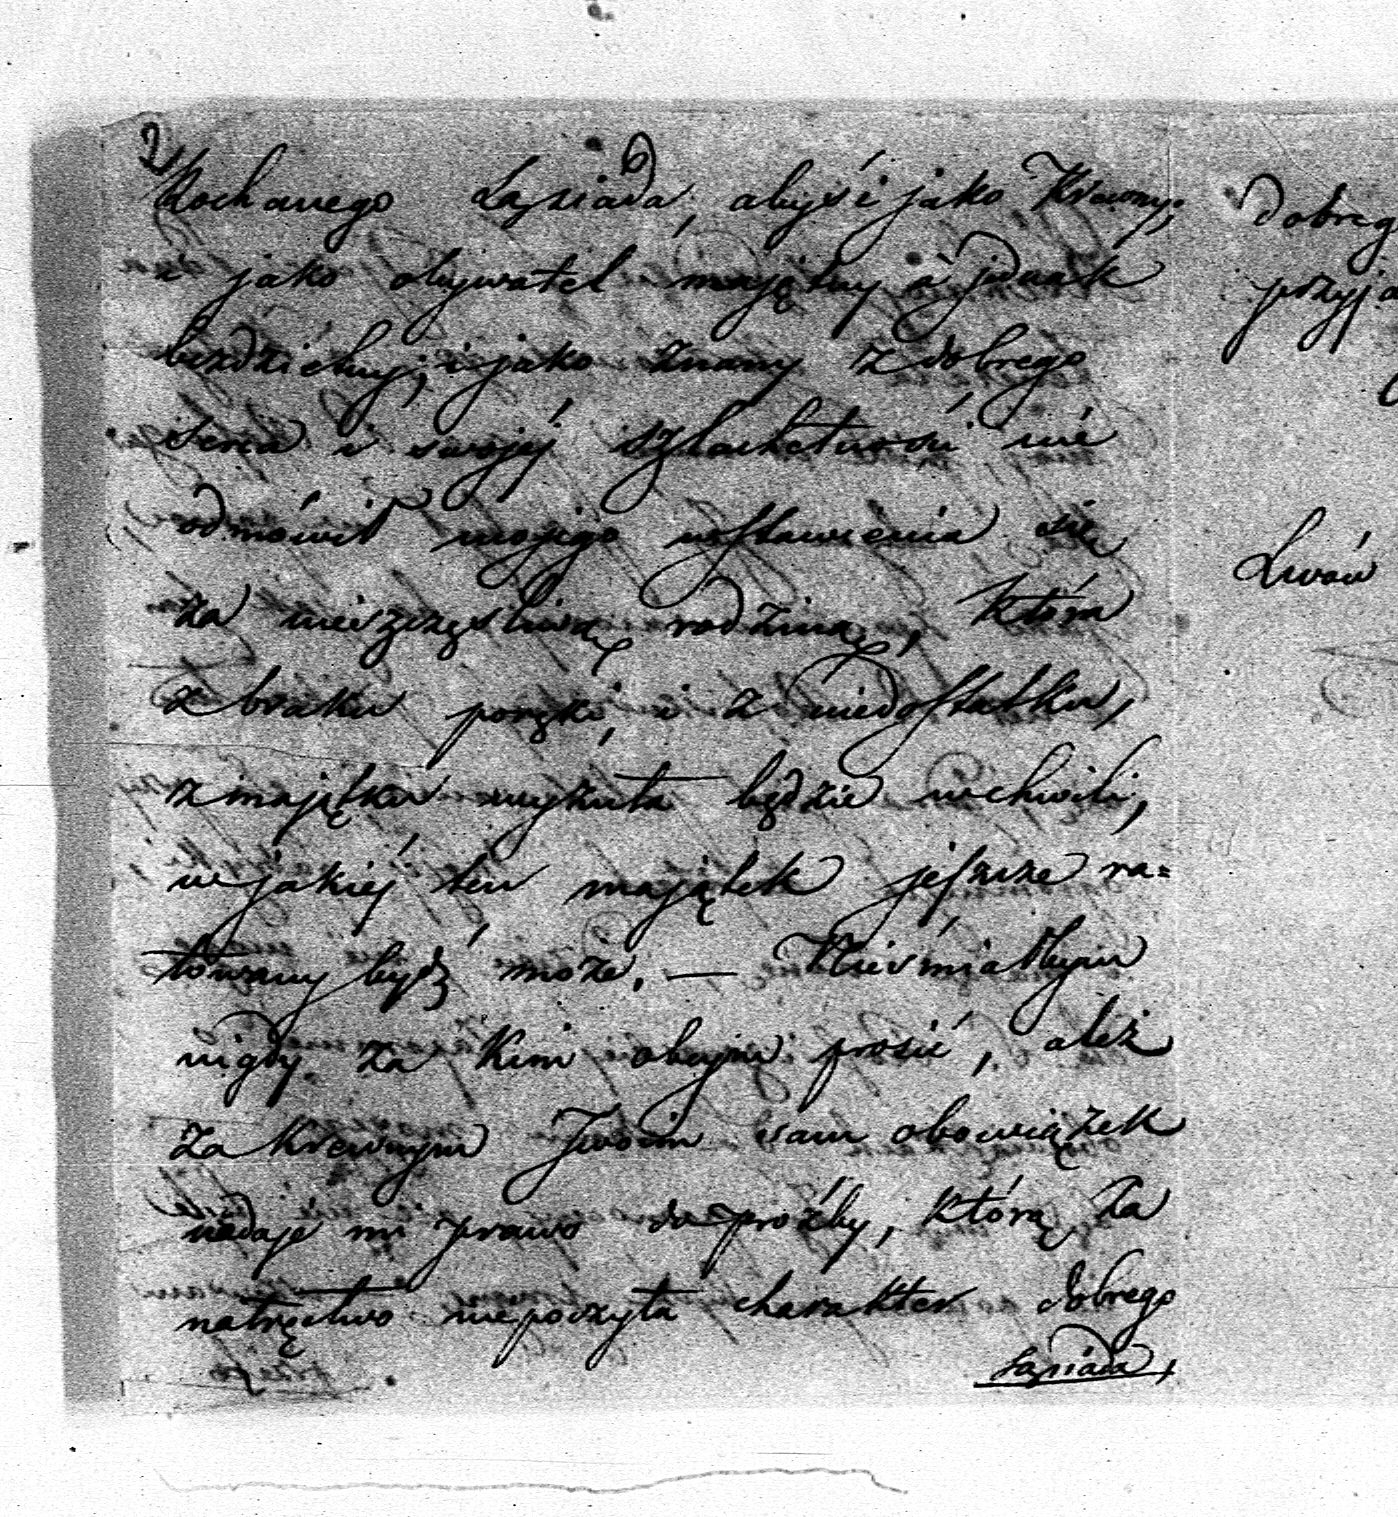 2
Kochanego Sąsiada, abyś i jako Krewny,
i jako obywatel majętny a jednak
bezdzietny; i jako znany z dobrego
serca i swojéj szlachetności nié
odmówił mojego wstawienia się
za nieszczęśliwą rodziną, która
z braku poręki, i z niedostatku,
z majątku wyzuta będzie w chwili,
w jakiéj ten majątek jeszcze ra=
towany bydź może. — Nieśmiałbym
nigdy za kim obcym prosić, ależ
za krewnym Twoim sam obowiązek
nadaje mi prawo do proźby, którą za
natręctwo niepoczyta charakter dobrego
Sąsiada,
dobreg
przyja
Lwów